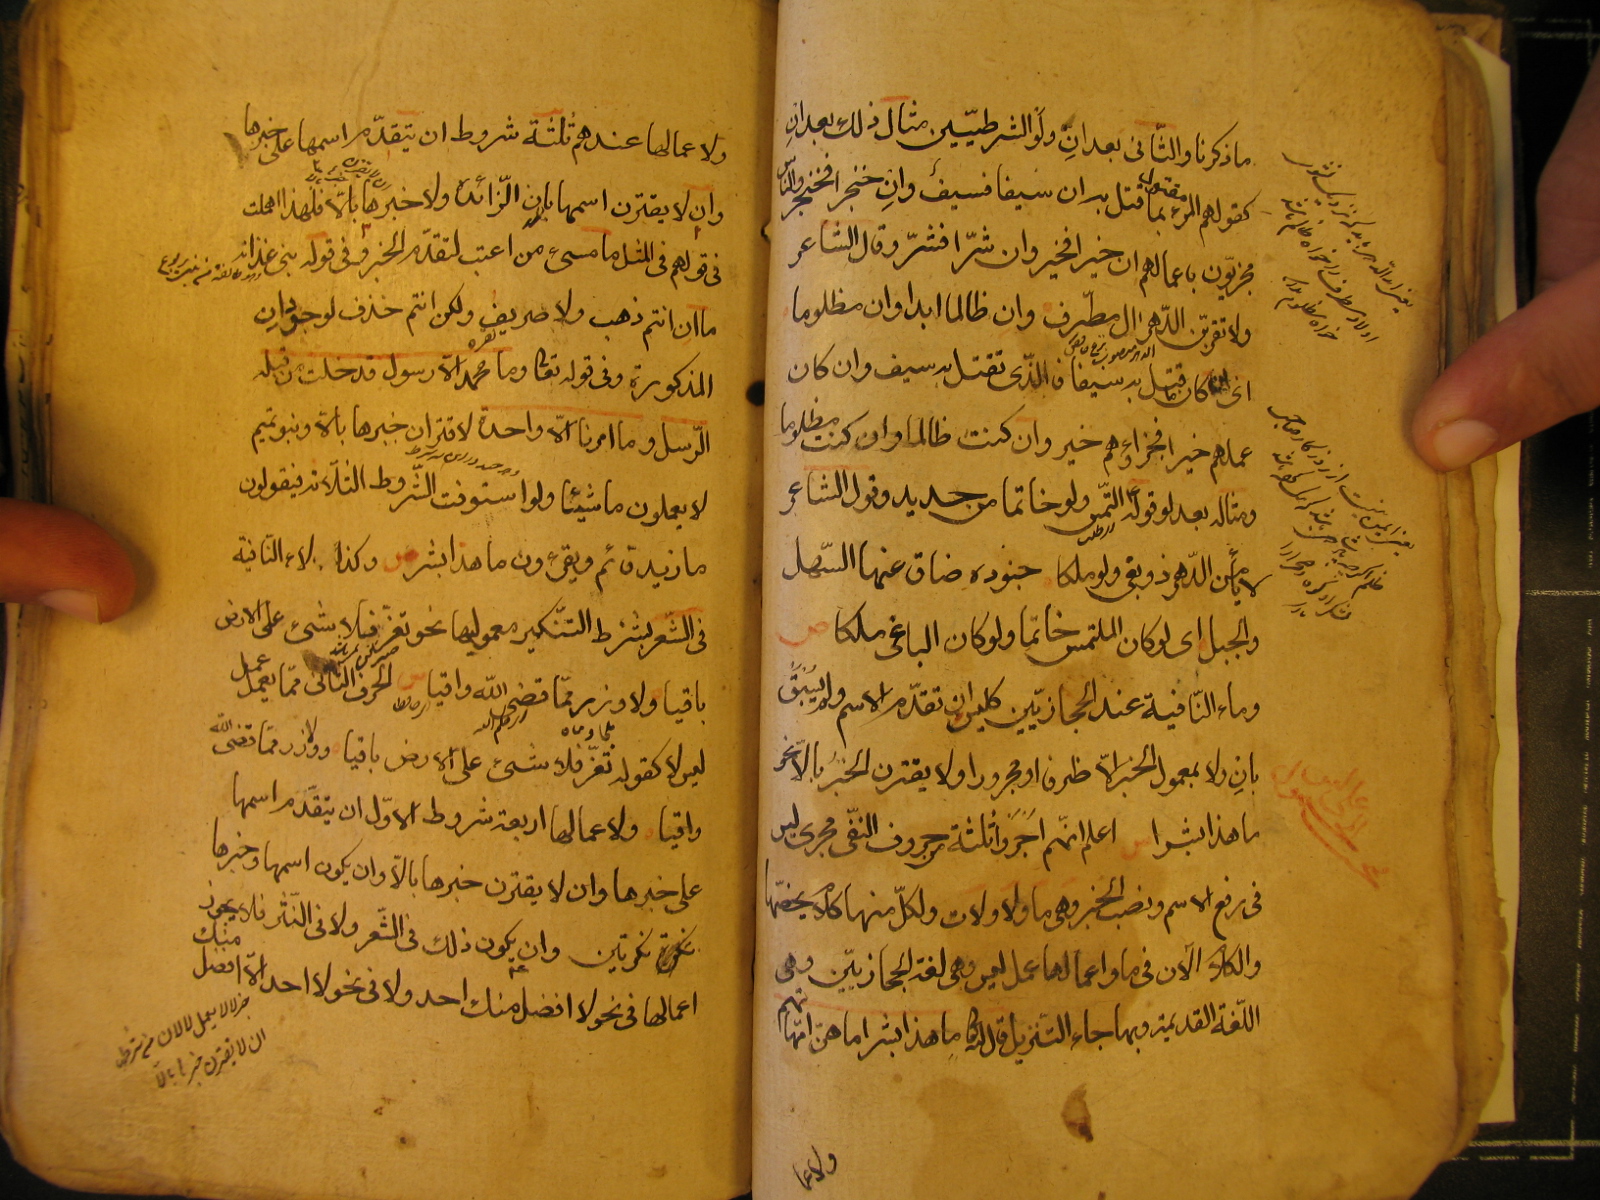 ما ذكرنا والثّاني بعد انِ ولَو الشرطيّتين مثال ذلك بعد انِ
كقولهم المرء مقتول بما قتل به ان سيفا فسيف وانِ خنجرا فخنجر والنّاس
مجزيّون باعمالهم ان خيرا فخير وان شرّا فشرّ وقال الشاعر
ولا تقربنّ الدّهر ال مطرّف وان ظالما ابدا وان مظلوما
اى ان كان ما قتل به سيفا فالذّى تقتل به سيف وان كان
عملهم خيرا فجزاؤهم خير وان كنت ظالما وان كنت مظلوما
ومثاله بعد لو قولك التمس ولو خاتما من حديد وقول الشاعر
لا يأمن الدّهر ذو بغى ولو ملكا جنوده ضاق عنها السّهل
والجبل اى لو كان الملتمس خاتما ولو كان الباغى ملكا ص
وماء النّافية عند الحجازيّين كليس ان تقدّم الاسم ولم يُسبَق
بانِ ولا بمعمول الخبر الّا ظرفا او مجرورا ولا يقترن الخبر بالّا نحو
ما هذا بشرا س اعلم انّهم اجروا ثلثة حروف النفّى مجرى ليس
فى رفع الاسم ونصب الخبر وهى ما ولا ولات ولكلّ منها كلام يخصّها
والكلام الآن فى ما واعمالها عمل ليس وهى لغة الحجازييّن وهى
اللّغة القديمة وبها جاء التّنزيل قال الله تعالى ما هذا بشرا ما هنّ امّهاتهم
ولاعما
ولاعمالها عندهم ثلثة شروط ان يتقدّم اسمها على خبرها
وان لا يقترن اسمها بان الزّائدة ولا خبرها بالّا فلهذا اهملت
فى قولهم فى المثل ما مسئ من اعتب لتقدّم الخبر وفى قوله بنى غدانه
ما ان انتم ذهب ولا صريف ولكن انتم خذف لوجود انِ
المذكورة وفى قوله تعالى وما محمد الّا رسول قد خلت من قبله
الرّسل وما امرنا الّا واحدة لاقتران خبرها بالّا وبنو تميم
لا يعملون ما شيئا ولو استوفت الشّروط الثلاثة فيقولون
ما زيد قائم ويقرءون ما هذا بشر ص وكذا لاء النّافية
فى الشّعر بشرط التّنكير معموليها نحو تعزّ فلا شئ على الارض
باقيا ولا وزر ممّا قضى اللّه واقيا س الحرف الثّانى ممّا يعمل عمل
ليس لا كقوله تعزّ فلا شئ على الارض باقيا ولا وزر ممّا قضى اللّه
واقيا ولاعمالها اربعة شروط الاوّل ان يتقدّم اسمها
على خبرها وان لا يقترن خبرها بالّا وان يكون اسمها وخبرها
نكرتين وان يكون ذلك فى الشّعر ولا فى النّثر فلا يجوز
اعمالها فى نحو لا افضل منك احد ولا فى نحو لا احد الّا افضل منك
ان لا يقترن خبرها بالّا